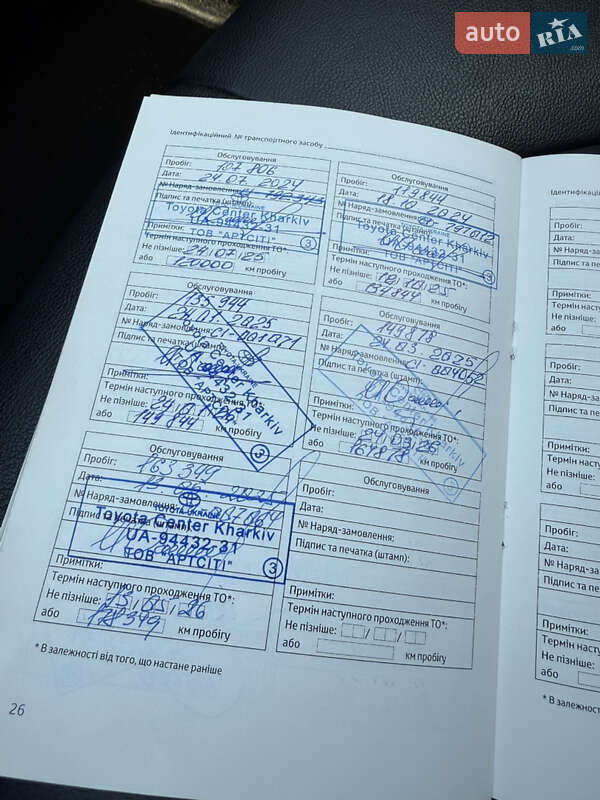 auto RIA .com
Ідентифікаційний № транспортного засобу
Обслуговування
Пробіг: 107 806
Дата: 24.07.2024
№ Наряд-замовлення:
Підпис та печатка
Toyota Center Kharkiv
UA-94432-31
ТОВ "АРТСІТІ" 3
Термін наступного проходження ТО*:
Не пізніше: 24/07/25
або 120000 км пробігу
Обслуговування
Пробіг: 119844
Дата: 18.10.2024
№ Наряд-замовлення:
Підпис та печатка
Toyota Center Kharkiv
UA-94432-31
ТОВ "АРТСІТІ" 3
Примітки:
Термін наступного проходження ТО*:
Не пізніше: 18/10/25
або 134844 км пробігу
Обслуговування
Пробіг: 135 944
Дата: 24.01.2025
№ Наряд-замовлення: 001071
Підпис та печатка (штамп):
Kharkiv
3
Примітки:
Термін наступного проходження ТО*:
Не пізніше:
або км пробігу
Обслуговування
Пробіг: 149818
Дата: 24.03.2025
№ Наряд-замовлення: 004052
Підпис та печатка (штамп):
Kharkiv
3
Примітки:
Термін наступного проходження ТО*:
Не пізніше: 24/03/26
або 164818 км пробігу
Обслуговування
Пробіг: 163 349
Дата:
№ Наряд-замовлення:
Підпис та печатка (штамп):
TOYOTA UKRAINE
Toyota Center Kharkiv
UA-94432-31
ТОВ "АРТСІТІ" 3
Примітки:
Термін наступного проходження ТО*:
Не пізніше: /05/26
або 178349 км пробігу
Обслуговування
Пробіг:
Дата:
№ Наряд-замовлення:
Підпис та печатка (штамп):
Примітки:
Термін наступного проходження ТО*:
Не пізніше: / /
або км пробігу
* В залежності від того, що настане раніше
26
Пробіг:
Дата:
№ Наряд-
Підпис та
Примітки:
Термін
Не пізніше:
або
Пробіг:
Дата:
№ Наряд-
Підпис та
Примітки:
Термін
Не пізніше
або
Пробіг:
Дата:
№ Наряд-
Підпис та
Примітки:
Термін
Не пізніше
або
* В залежності